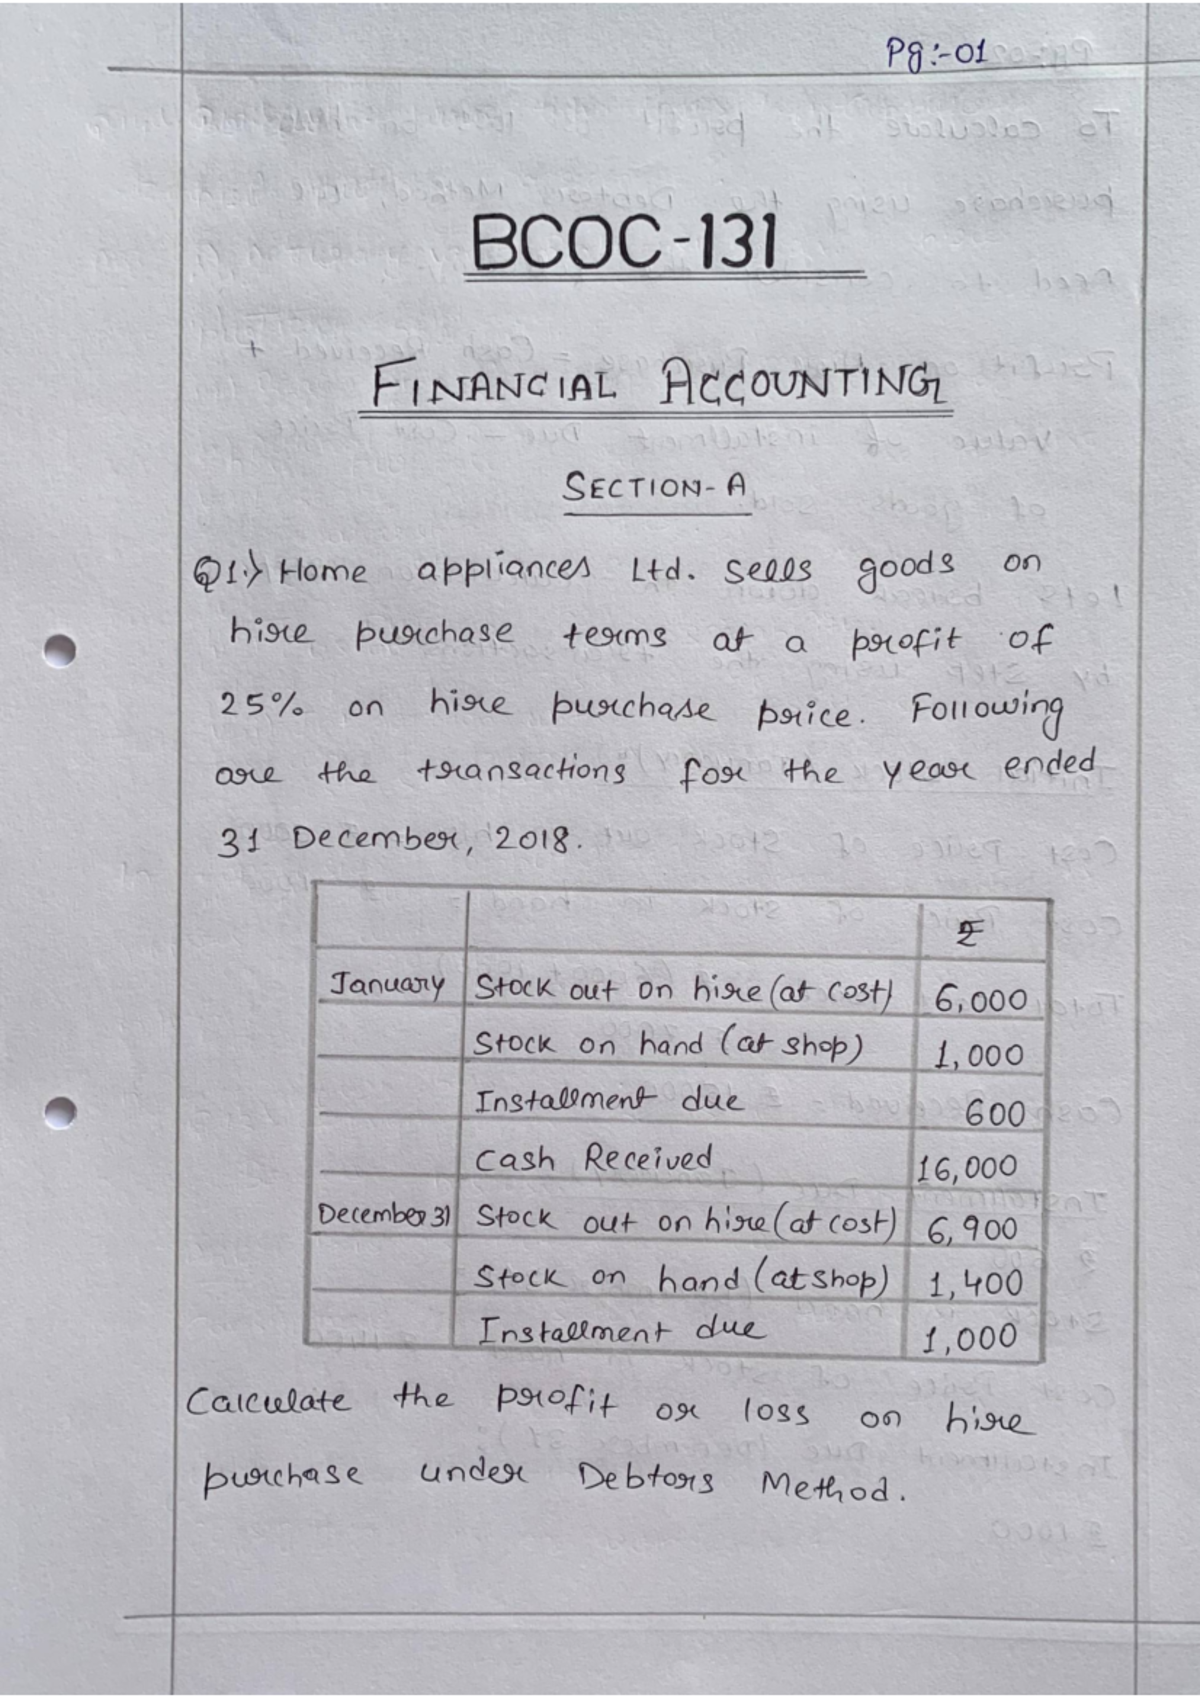 Pg:-01
BCOC-131
FINANCIAL ACCOUNTING
SECTION-A
Q1.> Home appliances Ltd. sells goods on
hire purchase terms at a profit of
25% on hire purchase price. Following
are the transactions for the year ended
31 December, 2018.
₹
January Stock out on hire (at cost) 6,000
Stock on hand (at shop) 1,000
Installment due 600
Cash Received 16,000
December 31 Stock out on hire (at cost) 6,900
Stock on hand (at shop) 1,400
Installment due 1,000
Calculate the profit or loss on hire
purchase under Debtors Method.